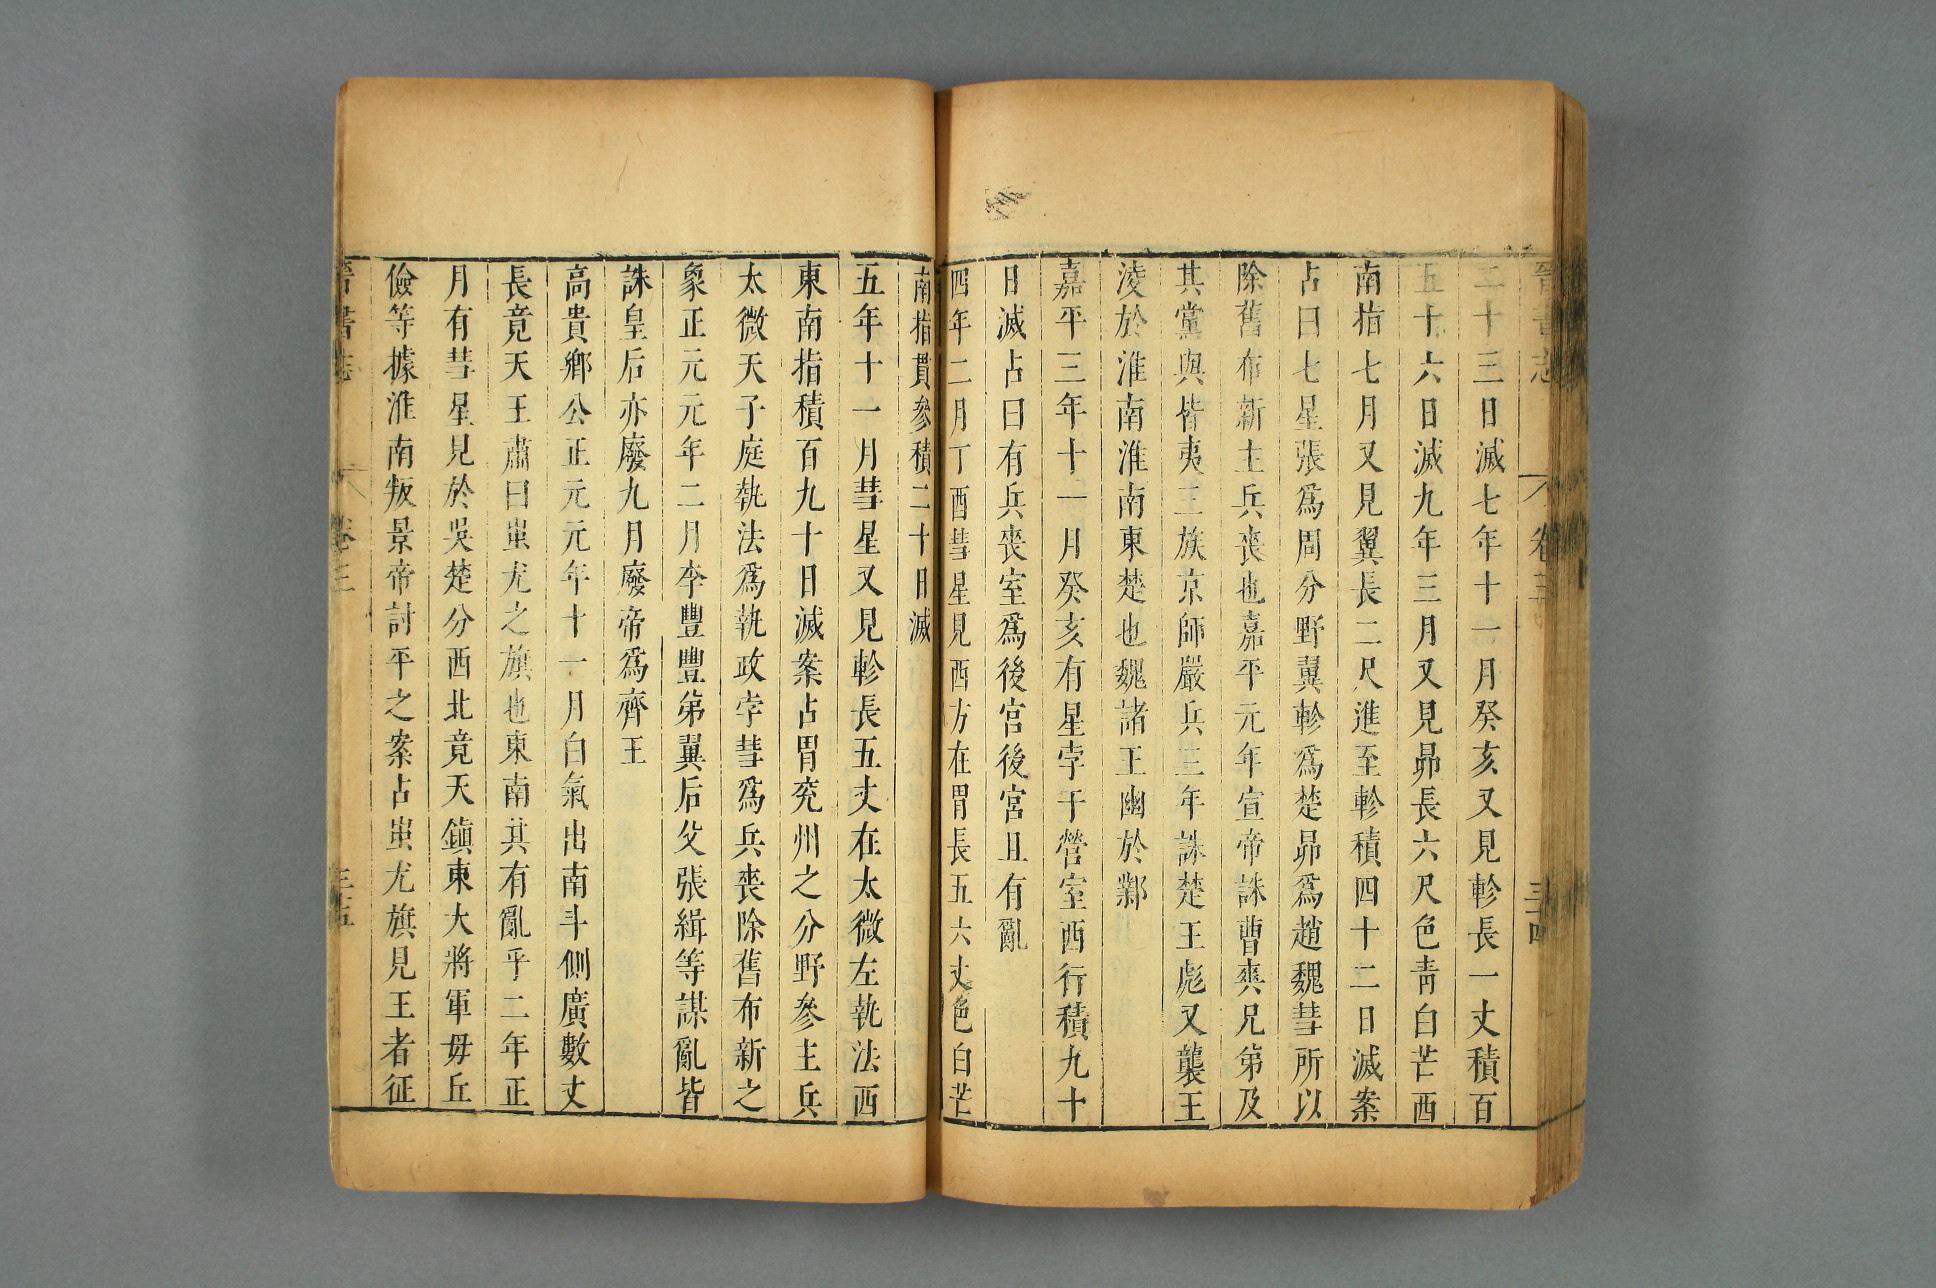 晉書志 卷三 三十四
二十三日滅七年十一月癸亥又見軫長一丈積百
五十六日滅九年三月又見昴長六尺色青白芒西
南指七月又見翼長二尺進至軫積四十二日滅案
占曰七星張爲周分野翼軫爲楚昴爲趙魏彗所以
除舊布新主兵喪也嘉平元年宣帝誅曹爽兄弟及
其黨與皆夷三族京師嚴兵三年誅楚王彪又襲王
淩於淮南淮南東楚也魏諸王幽於鄴
嘉平三年十一月癸亥有星孛于營室西行積九十
日滅占曰有兵喪室爲後宮後宮且有亂
四年二月丁酉彗星見西方在胃長五六丈色白芒
南指貫參積二十日滅
五年十一月彗星又見軫長五丈在太微左執法西
東南指積百九十日滅案占胃兖州之分野參主兵
太微天子庭執法爲執政孛彗爲兵喪除舊布新之
象正元元年二月李豐豐弟翼后父張緝等謀亂皆
誅皇后亦廢九月廢帝爲齊王
高貴鄉公正元元年十一月白氣出南斗側廣數丈
長竟天王肅曰蚩尤之旗也東南其有亂乎二年正
月有彗星見於吳楚分西北竟天鎮東大將軍毋丘
儉等據淮南叛景帝討平之案占蚩尤旗見王者征
晉書志 卷三 三十五